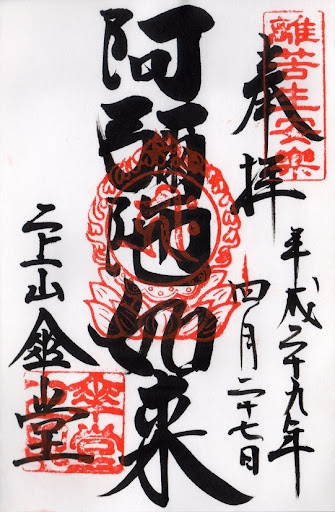 離苦生安楽
奉拝
平成二十九年
四月二十七日
阿彌陀如来
二上山
傘堂
傘堂